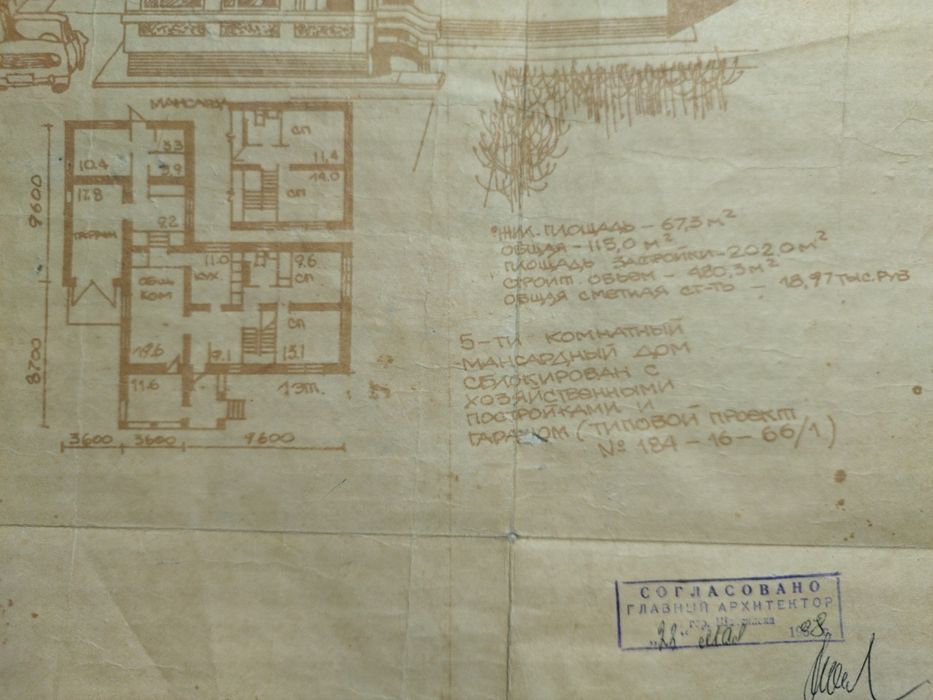 МАНСАРДА
СП
3.3
10.4
11.4
3.9
14.0
17.8
СП
9.2
ГАРАЖ
9600
11.0
9.6
КУХ
СП
ОБЩ.
КОМ
СП
19.6
9.1
13.1
8700
11.6
1 ЭТ.
3600 3600 9600
ЖИЛ. ПЛОЩАДЬ – 67,3 м²
ОБЩАЯ – 115,0 м²
ПЛОЩАДЬ ЗАСТРОЙКИ – 202,0 м²
СТРОИТ. ОБЪЕМ – 480,3 м²
ОБЩАЯ СМЕТНАЯ СТ-ТЬ – 18,97 ТЫС. РУБ
5-ТИ КОМНАТНЫЙ
МАНСАРДНЫЙ ДОМ
СБЛОКИРОВАН С
ХОЗЯЙСТВЕННЫМИ
ПОСТРОЙКАМИ И
ГАРАЖОМ (ТИПОВОЙ ПРОЕКТ
№ 184-16-66/1)
СОГЛАСОВАНО
ГЛАВНЫЙ АРХИТЕКТОР
гор.
мая 1988г.